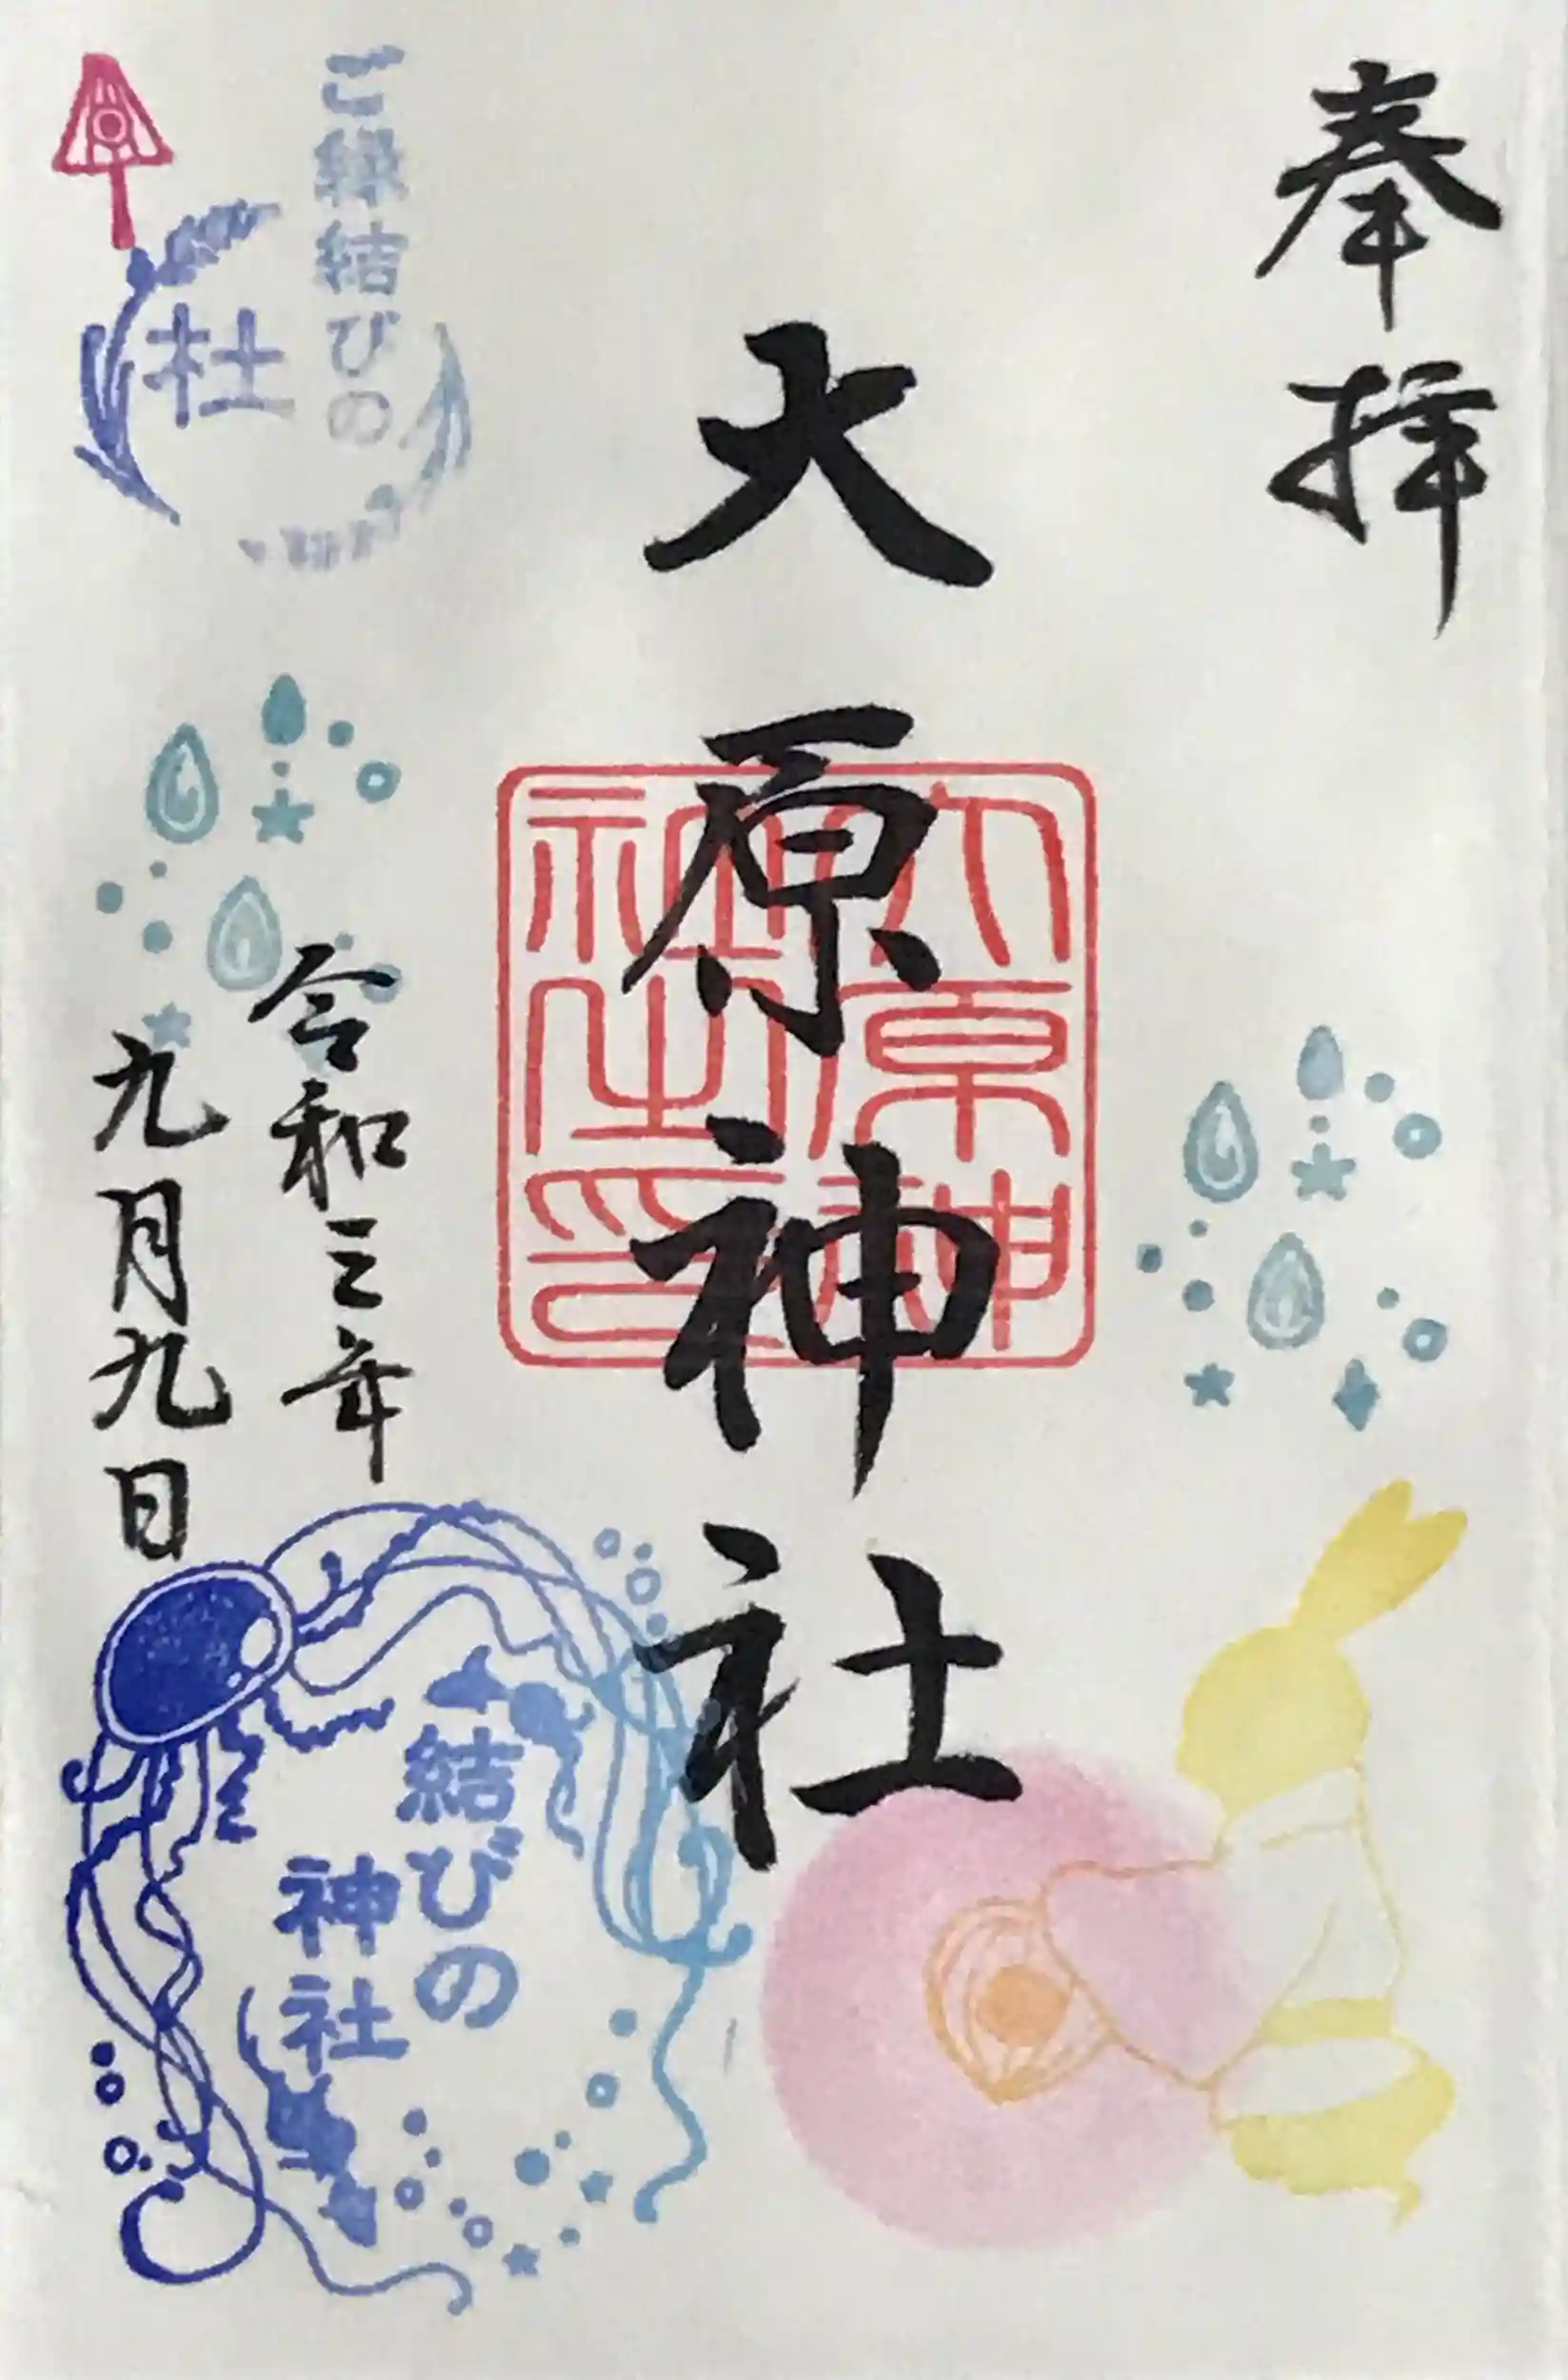 奉拝
大原神社
大原神社之印
ご縁結びの
杜
令和三年
九月九日
結びの
神社